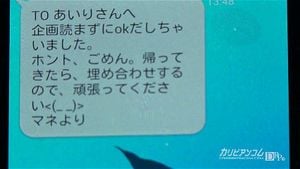 13:48
TO あいりさんへ
企画読まずにokだしちゃ
いました。
ホント、ごめん。帰って
きたら、埋め合わせする
ので、頑張ってくださ
い<(_ _)>
マネより
カリビアンコム